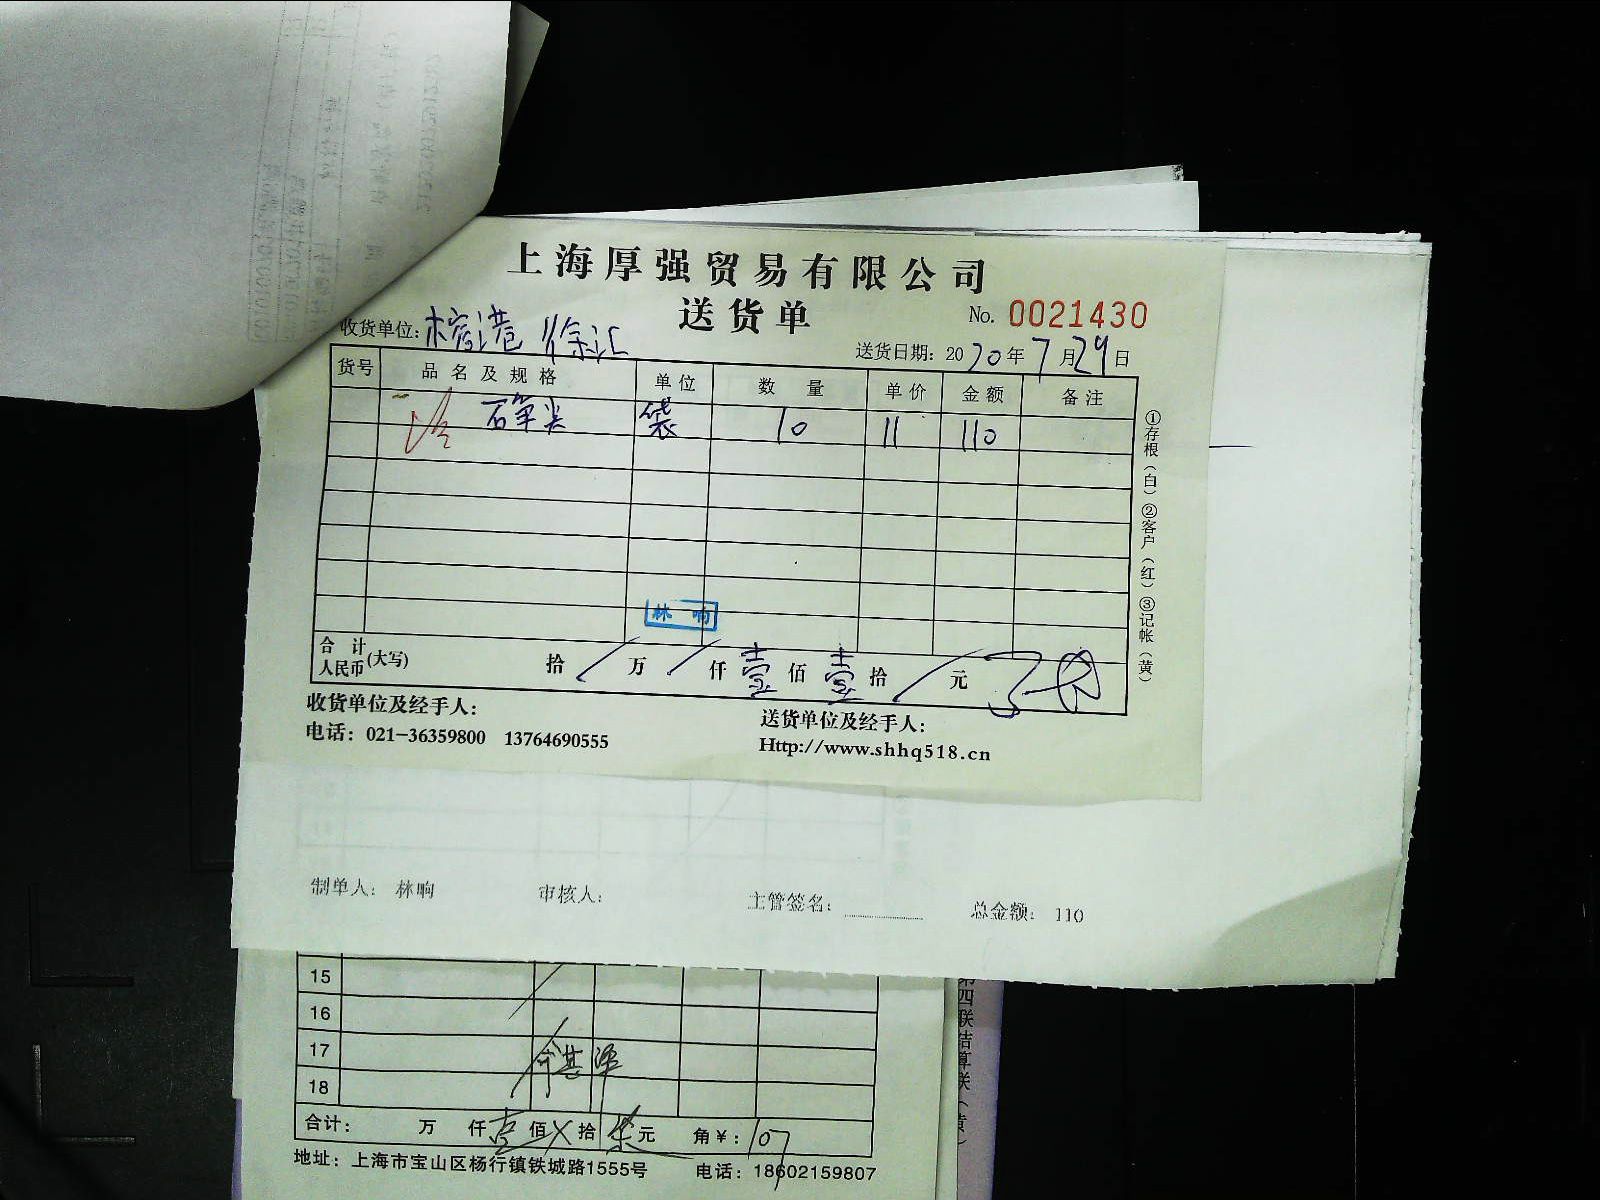 上海厚强贸易有限公司
送货单
No. 0021430
收货单位: 榕港 徐汇
送货日期: 2020年7月29日
货号 品名及规格 单位 数量 单价 金额 备注
石笔尖 袋 10 11 110
①存根(白)②客户(红)③记帐(黄)
林响
合计人民币(大写) 拾/万/仟壹佰壹拾/元
收货单位及经手人:
送货单位及经手人:
电话: 021-36359800 13764690555
Http://www.shhq518.cn
制单人: 林响 审核人: 主管签名: 总金额: 110
15
16
17
18
第四联结算联(黄)
合计: 万 仟壹佰X拾柒元 角¥: 107
地址: 上海市宝山区杨行镇铁城路1555号 电话: 18602159807